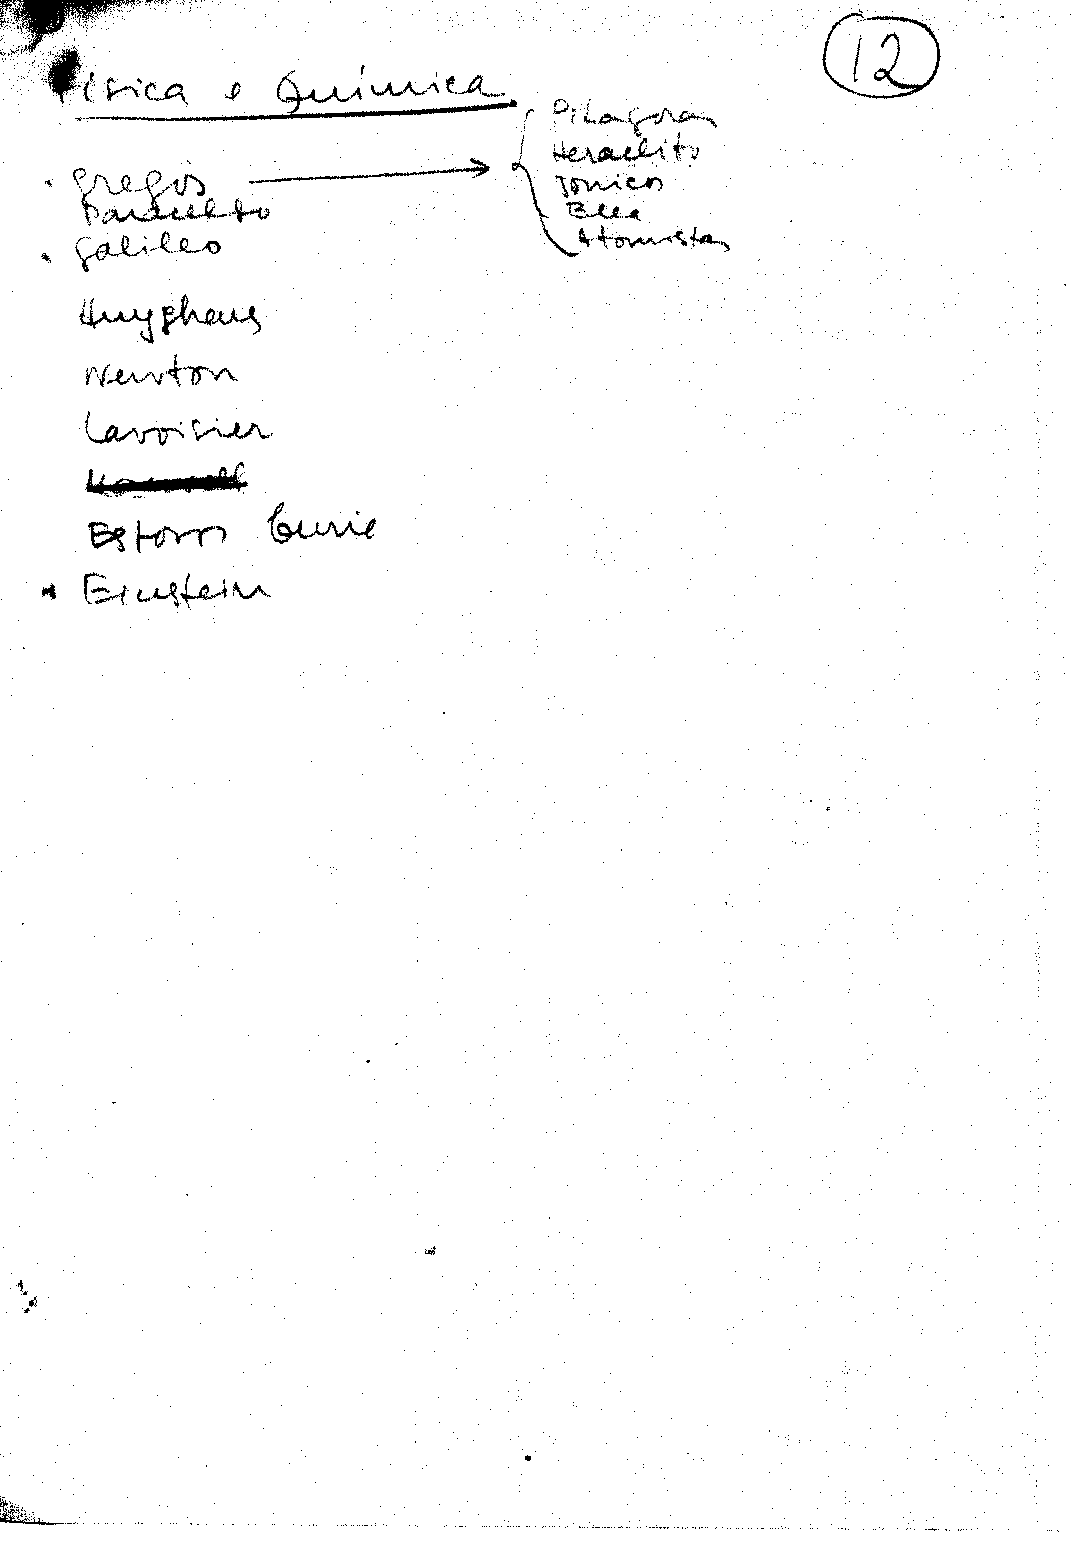 12
Física e Química
Pitagoras
Heraclito
Jonicos
Elea
Atomistas
· gregos
Paracelso
· galileo
Huyghens
Newton
Lavoisier
Esposos Curie
· Einstein